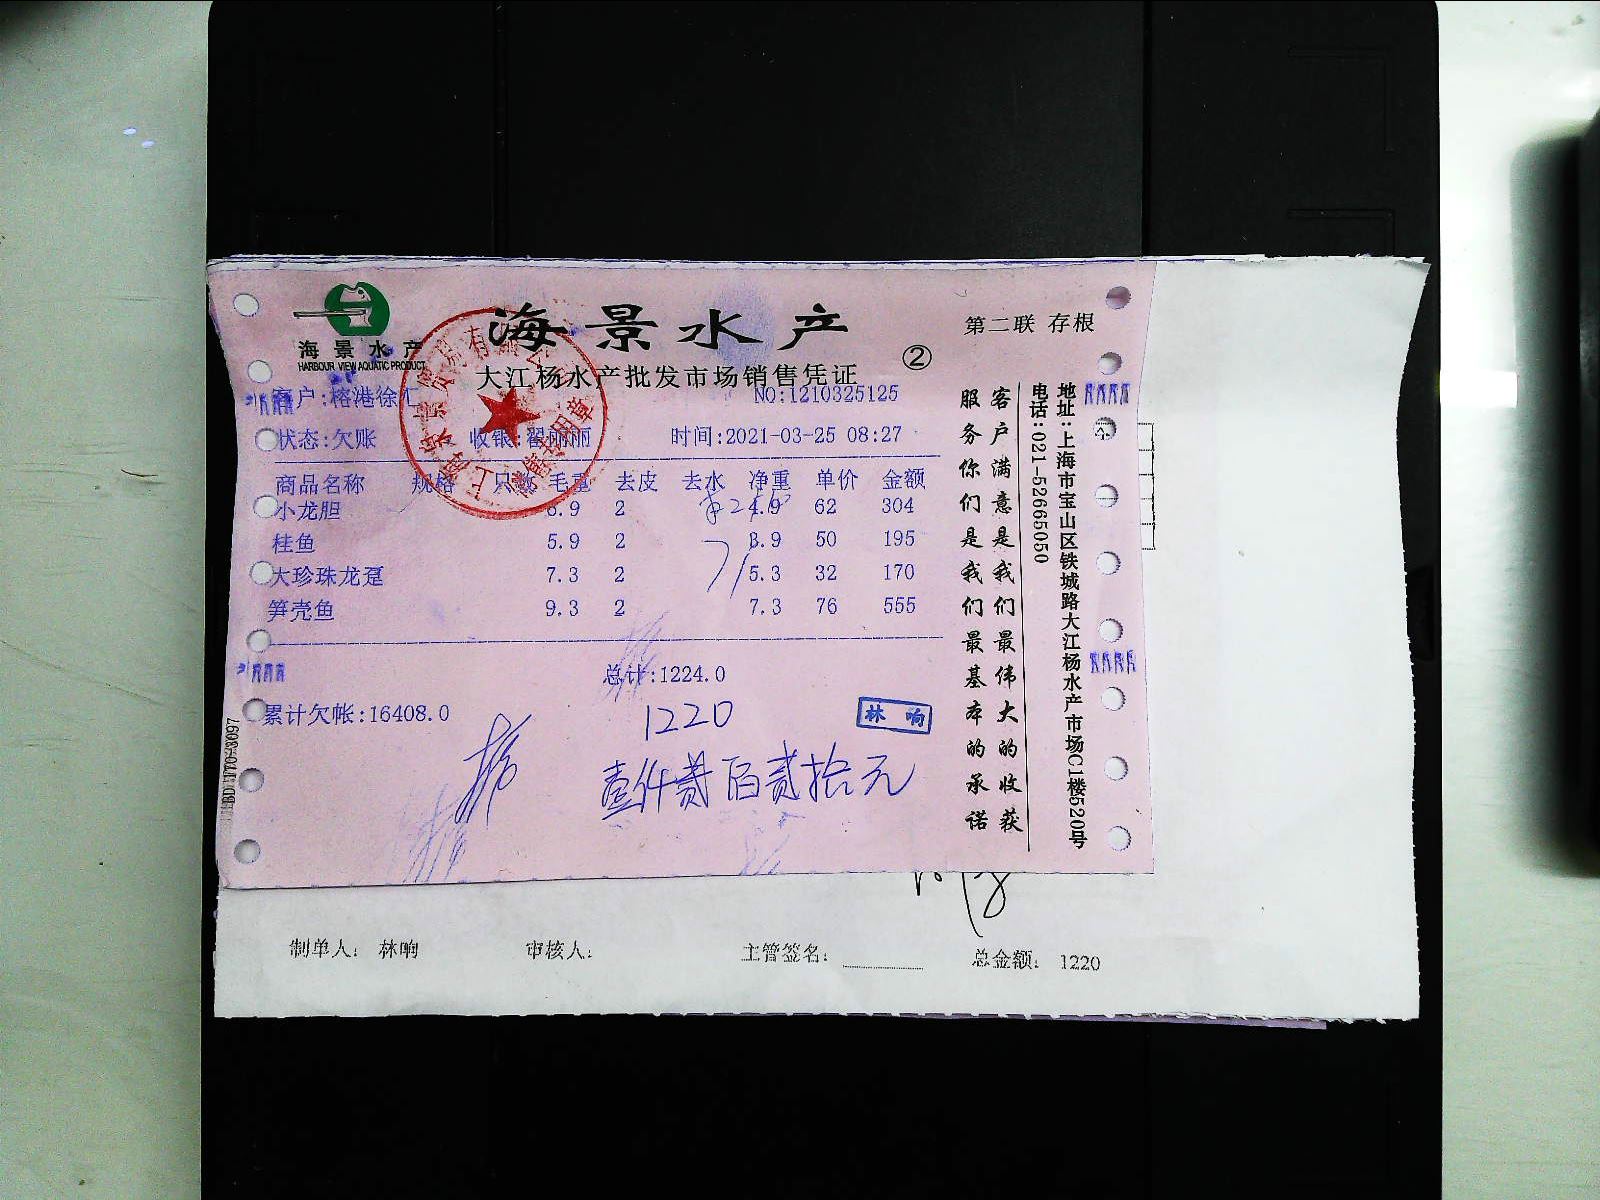 海景水产
HARBOUR VIEW AQUATIC PRODUCT
海景水产
大江杨水产批发市场销售凭证
②
第二联 存根
客户:榕港徐汇
NO:1210325125
状态:欠账 收银:翟丽丽 时间:2021-03-25 08:27
商品名称 规格 只数 毛重 去皮 去水 净重 单价 金额
小龙胆 6.9 2 4.9 62 304
桂鱼 5.9 2 3.9 50 195
大珍珠龙趸 7.3 2 5.3 32 170
笋壳鱼 9.3 2 7.3 76 555
总计:1224.0
累计欠帐:16408.0
1220
林响
壹仟贰佰贰拾元
客户满意是我们最伟大的收获
服务你们是我们最基本的承诺
地址:上海市宝山区铁城路大江杨水产市场C1楼520号
电话:021-52665050
制单人: 林响 审核人: 主管签名: 总金额: 1220